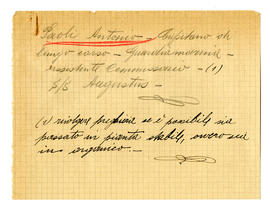 Paoli Antonio - Capitano di
lungo corso - Guardiamarina -
assistente Commissario - (1)
S/S Augustus -
(1) rivolgere preghiera se è possibile sia
passato in pianta stabile, ovvero sia
in organico -